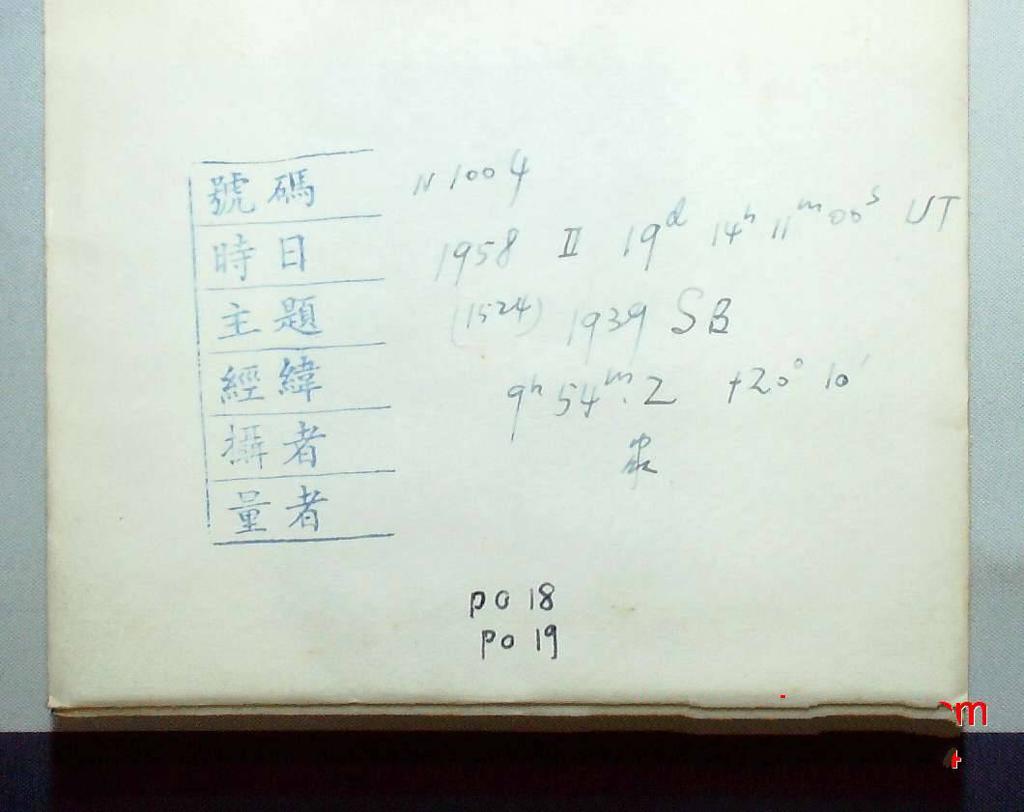 號碼 N 1004
時日 1958 II 19ᵈ 14ʰ 11ᵐ 00ˢ UT
主題 (1524) 1939 SB
經緯 9ʰ 54ᵐ.2 +20° 10′
攝者
量者
po 18
po 19